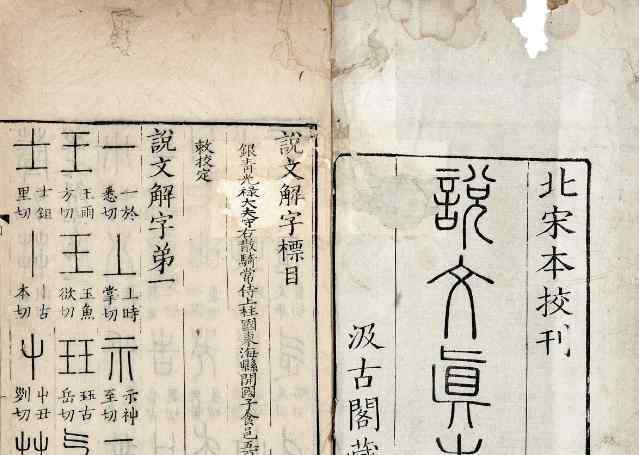 北宋本挍刊
說文眞
汲古閣藏
說文解字標目
銀青光祿大夫守右散騎常侍上柱國東海縣開國子食邑五
敕挍定
說文解字弟一
一 一於悉切 丄 丄時掌切 示 示神至切
王 王雨方切 玉 玉魚欲切 玨 玨古岳切
士 士鉏里切 丨 丨古本切 屮 屮丑劉切 艸